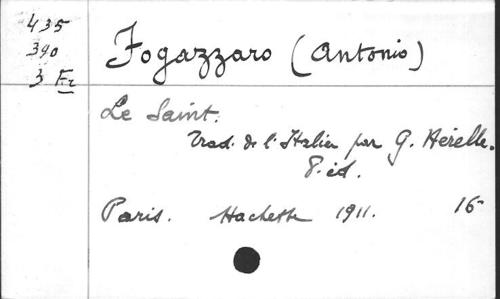 435
390
3 Fr
Fogazzaro (Antonio)
Le Saint.
Trad. de l'Italien par G. Hérelle.
8e éd.
Paris. Hachette 1911. 16-